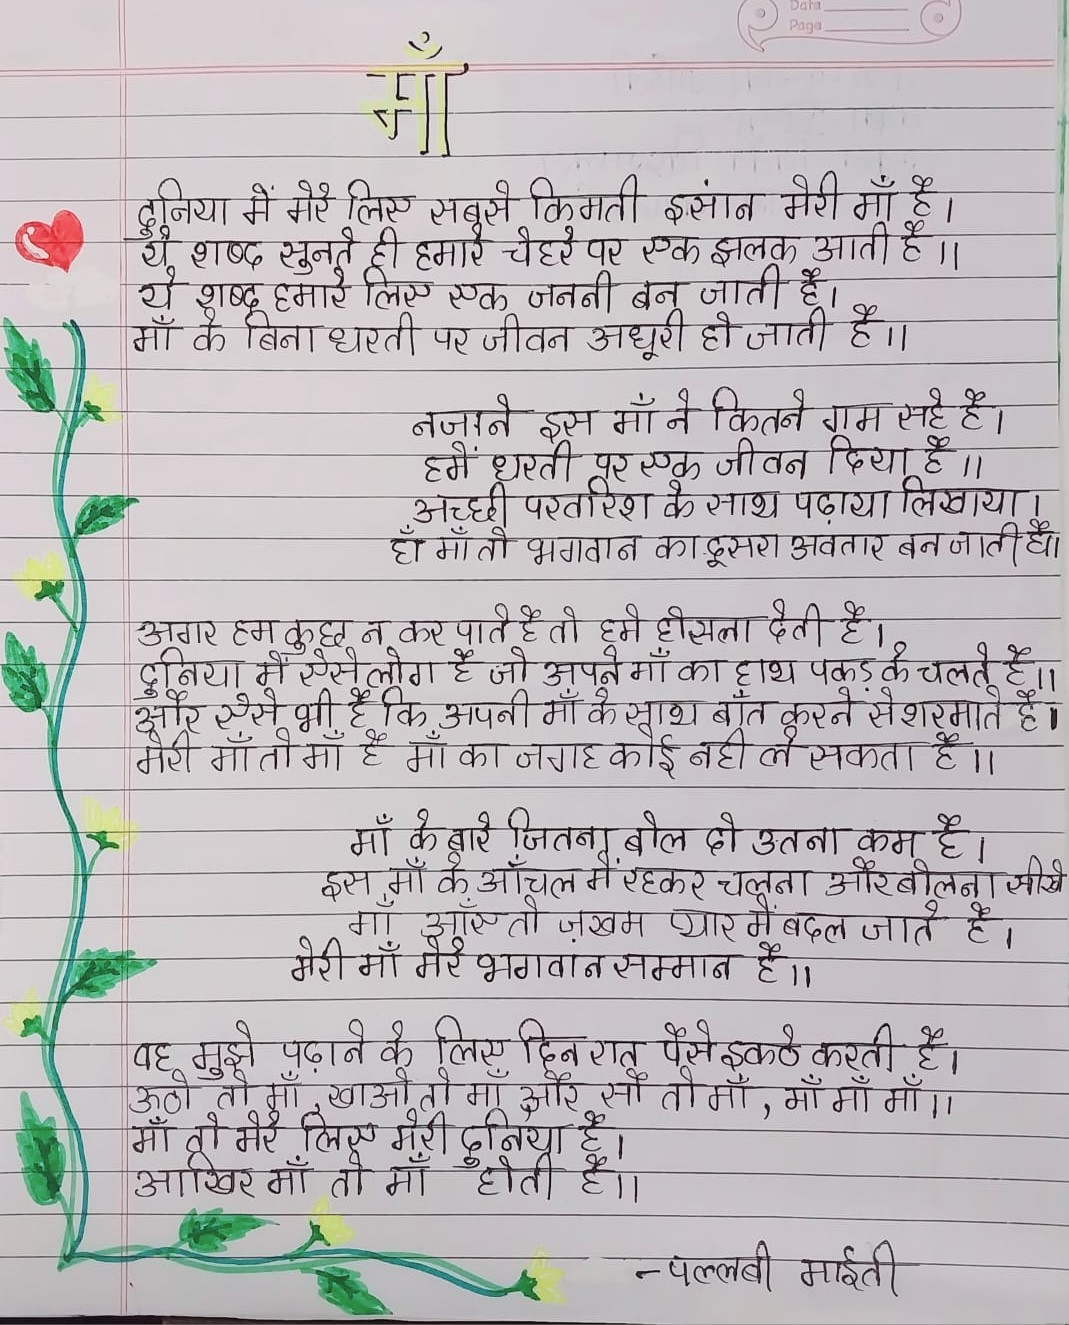 Data
Page
माँ
दुनिया में मेरे लिए सबसे किमती इसंान मेरी माँ है।
ये शब्द सुनते ही हमारे चेहरे पर एक झलक आती है॥
ये शब्द हमारे लिए एक जननी बन जाती है।
माँ के बिना धरती पर जीवन अधूरी हो जाती है॥
नजाने इस माँ ने कितने गम सहे है।
हमें धरती पर एक जीवन दिया है॥
अच्छी परवरिश के साथ पढ़ाया लिखाया।
हाँ माँ तो भगवान का दूसरा अवतार बन जाती है॥
अगर हम कुछ न कर पाते है तो हमे हौसला देती है।
दुनिया में ऐसे लोग है जो अपने माँ का हाथ पकड़ के चलते है॥
और ऐसे भी है कि अपनी माँ के साथ बाँत करने से शरमाते है।
मेरी माँ तो माँ है माँ का जगह कोई नही ले सकता है॥
माँ के बारे जितना बोल दो उतना कम है।
इस माँ के आँचल में रहकर चलना और बोलना सीखे
माँ आँए तो ज़खम प्यार में बदल जाते है।
मेरी माँ मेरे भगवान सम्मान है॥
वह मुझे पढ़ाने के लिए दिन रात पैसे इकठे करती है।
ऊठो तो माँ, खाओ तो माँ और सौ तो माँ, माँ माँ माँ॥
माँ तो मेरे लिए मेरी दुनिया है।
आखिर माँ तो माँ होती है॥
-पल्लबी माईती